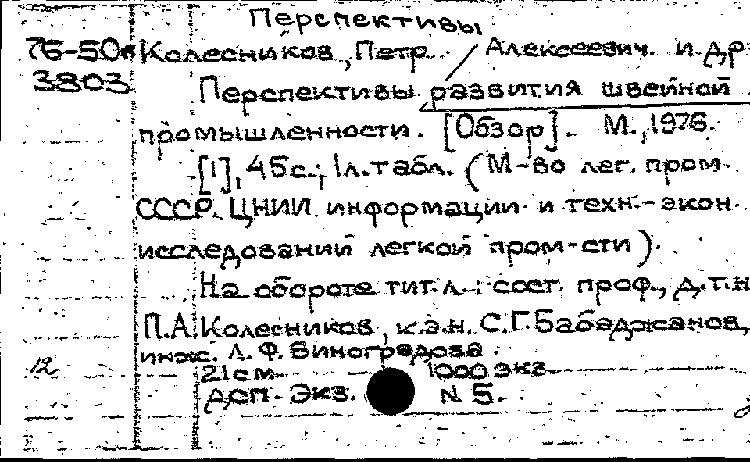 Перспективы
76-50к Колесников, Петр Алексеевич и др
3803 Перспективы развития швейной
промышленности. [Обзор]. М., 1976.
[1], 45 с.; 1 л. табл. (М-во лег. пром.
СССР. ЦНИИ информации и техн.-экон.
исследований легкой пром-сти).
На обороте тит. л.: сост. проф., д.т.н
П.А. Колесников, к.э.н. С.Г. Бабаджанов,
инж. Л. Ф. Виноградова.
12 21 см 1000 экз
Доп. экз. N 5.